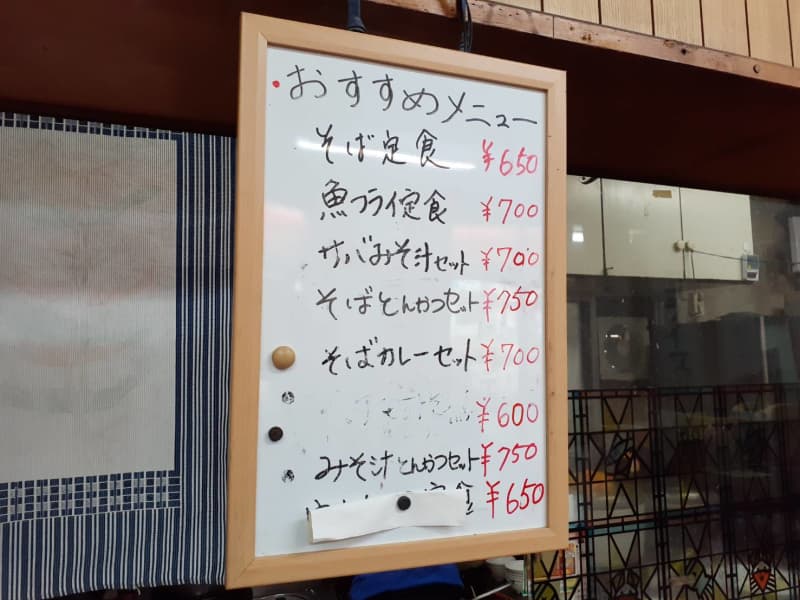 おすすめメニュー
そば定食 ¥650
魚フライ定食 ¥700
サバみそ汁セット ¥700
そばとんかつセット ¥750
そばカレーセット ¥700
¥600
みそ汁とんかつセット ¥750
定食 ¥650